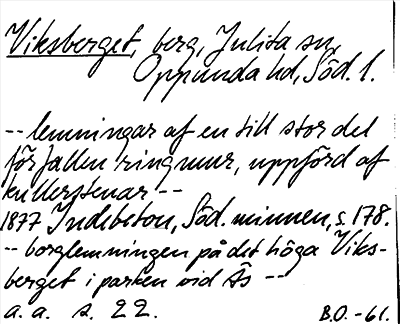 Viksberget, berg, Julita sn,
Oppunda hd, Söd. l.
-- lemningar af en till stor del
förfallen ringmur, uppförd af
kullerstenar --
1877 Indebetou, Söd. minnen, s. 178.
-- borglemningen på det höga Viks-
berget i parken vid Ås --
a. a. s. 22.
B.O. -61.